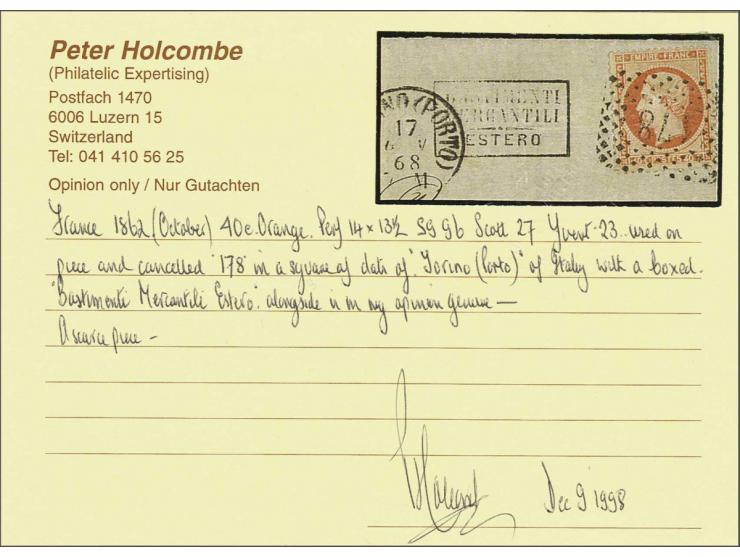 Peter Holcombe
(Philatelic Expertising)
Postfach 1470
6006 Luzern 15
Switzerland
Tel: 041 410 56 25
Opinion only / Nur Gutachten
NO (PORTO)
17
68
M
BASTIMENTI
MERCANTILI
ESTERO
EMPIRE FRANC
178
France 1862 (October) 40c Orange. Perf 14 x 13½ SG 96 Scott 27 Yvert 23 used on
piece and cancelled "178" in a square of dots of "Torino (Porto)" of Italy with a boxed
"Bastimenti Mercantili Estero" alongside is in my opinion genuine —
A scarce piece -
Dec 9 1998